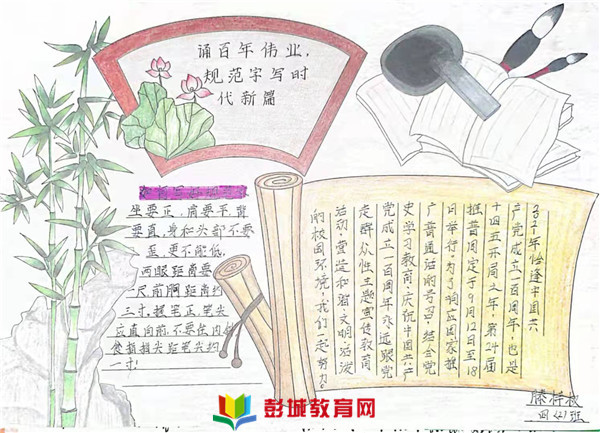 诵百年伟业,
规范字写时
代新篇
坐要正,肩要平背
要直,身和头部不要
歪,更不能低,
两眼距离要
一尺前胸距离约
三寸,握笔正,笔尖
应直向前,不要往内
食指指头距笔尖约
一寸!
2021年恰逢中国共
产党成立一百周年,也是
十四五开局之年,第24届
推普周定于9月12日至18
日举行,为了响应国家推
广普通话的号召,结合党
史学习教育,庆祝中国共产
党成立一百周年永远跟党
走群众性主题宣传教育
活动,营造和谐文明活泼
的校园环境,我们一起努力。
四(2)班
彭城教育网